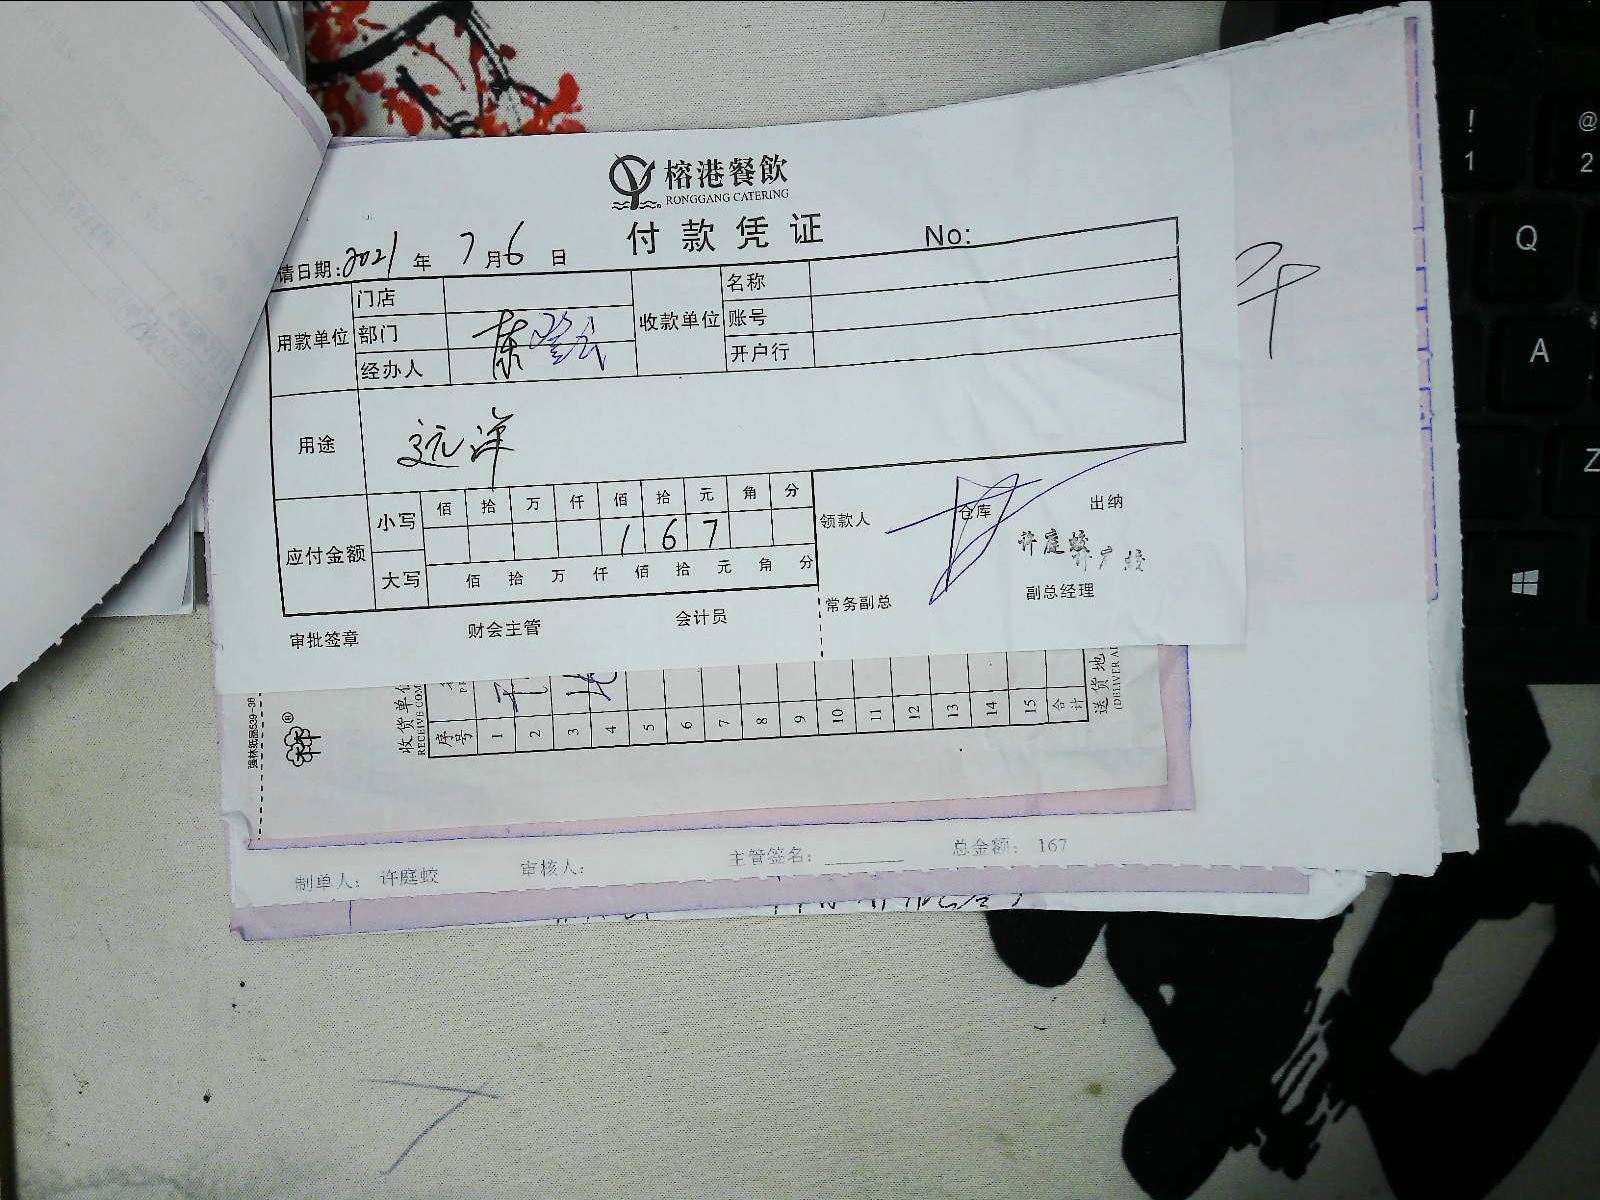 榕港餐飲
RONGGANG CATERING
付款凭证
No:
请日期: 2021 年 7 月 6 日
用款单位
门店
部门
经办人
收款单位
名称
账号
开户行
用途
远洋
应付金额
小写
佰 拾 万 仟 佰 拾 元 角 分
1 6 7
大写
佰 拾 万 仟 佰 拾 元 角 分
领款人
仓库
出纳
许庭蛟
常务副总
副总经理
审批签章
财会主管
会计员
收货单位
序号
1 2 3 4 5 6 7 8 9 10 11 12 13 14 15
合计
送货地
制单人: 许庭蛟
审核人:
主管签名:
总金额: 167
!
1
@
2
Q
A
Z